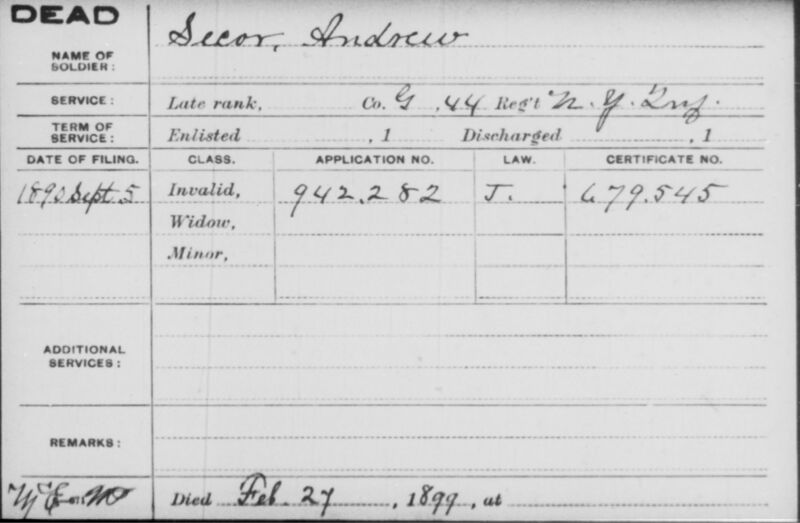 DEAD
NAME OF SOLDIER: Secor, Andrew
SERVICE: Late rank, Co. G, 44 Reg't N. Y. Inf.
TERM OF SERVICE: Enlisted , 1 Discharged , 1
DATE OF FILING. CLASS. APPLICATION NO. LAW. CERTIFICATE NO.
1890 Sept. 5 Invalid, 942.282 J. 679.545
Widow,
Minor,
ADDITIONAL SERVICES:
REMARKS:
Died Feb. 27, 1899, at